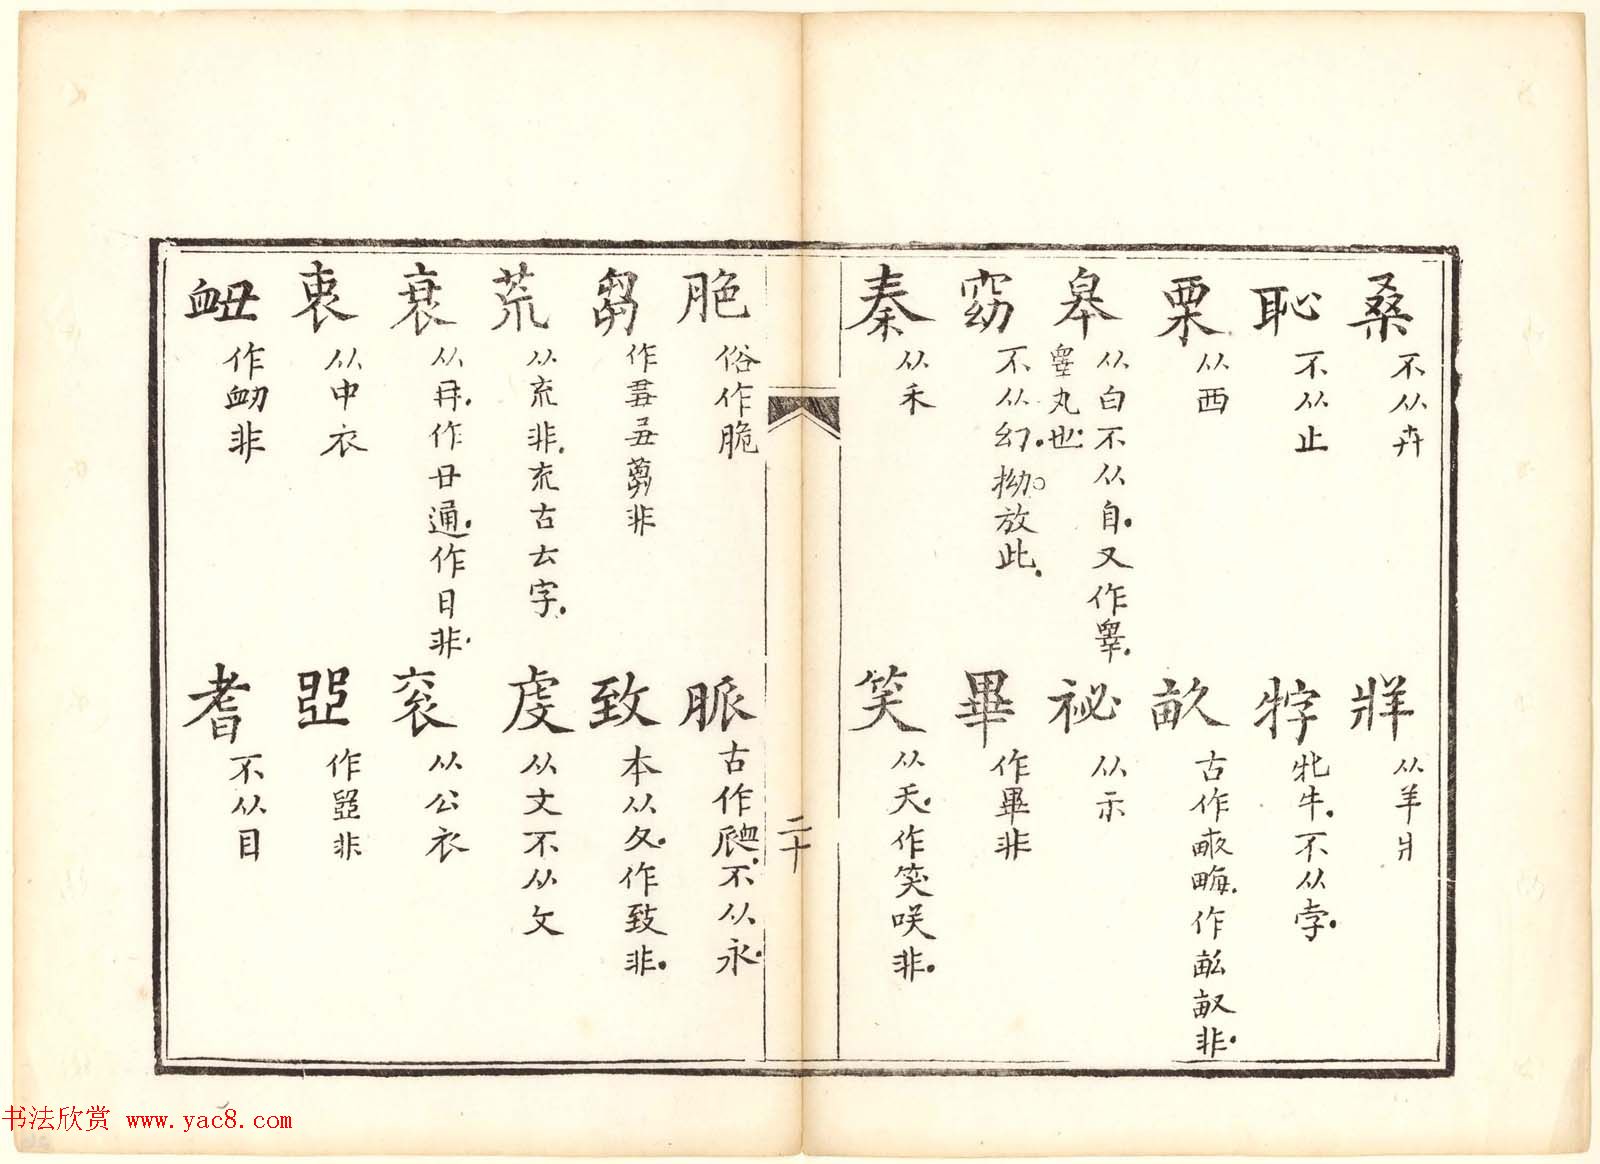 桑 不从卉
牂 从羊爿
恥 不从止
牸 牝牛不从孛
栗 从西
畝 古作畞畮作畆非
皋 从白不从自又作睾睪丸也
祕 从示
窈 不从幻拗放此
畢 作畢非
秦 从禾
笑 从夭作笶咲非
二十
脃 俗作脆
脈 古作衇不从永
芻 作蒭非
致 本从夊作致非
荒 从㐬非㐬古𠫓字
虔 从文不从夊
衰 从冄作日非
衮 从公衣
衷 从中衣
亞 作非
衄 作衂非
耆 不从目
书法欣赏 www.yac8.com